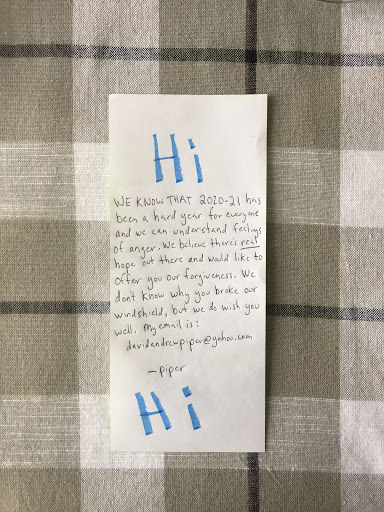 Hi
WE KNOW THAT 2020-21 has
been a hard year for everyone
and we can understand feelings
of anger. We believe there's real
hope out there and would like to
offer you our forgiveness. We
dont know why you broke our
windshield, but we do wish you
well. My email is:
davidandrewpiper@yahoo.com
—piper
Hi